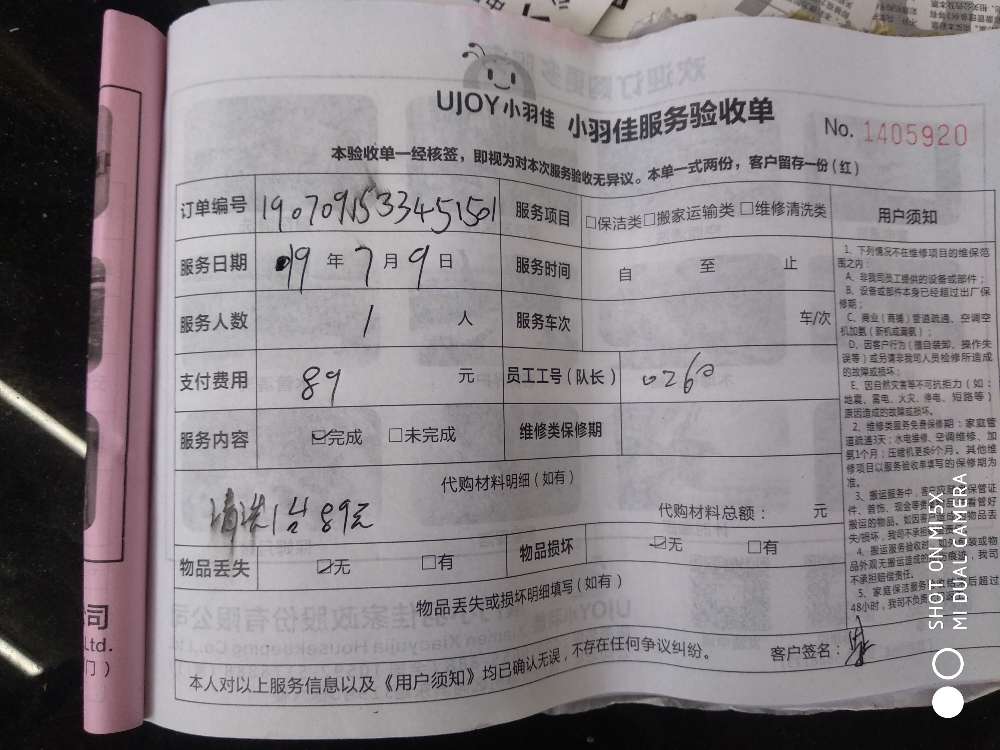 UJOY小羽佳 小羽佳服务验收单 No. 1405920
本验收单一经核签，即视为对本次服务验收无异议。本单一式两份，客户留存一份(红)
订单编号 1907091533451501 服务项目 □保洁类□搬家运输类 □维修清洗类 用户须知
服务日期 19 年 7 月 9 日 服务时间 自 至 止
服务人数 1 人 服务车次 车/次
支付费用 89 元 员工工号(队长)
服务内容 ☑完成 □未完成 维修类保修期
代购材料明细(如有)
清洗1台 89元 代购材料总额： 元
物品丢失 ☑无 □有 物品损坏 ☑无 □有
物品丢失或损坏明细填写(如有)
本人对以上服务信息以及《用户须知》均已确认无误，不存在任何争议纠纷。 客户签名：
1、下列情况不在维修项目的维保范
围之内：
A、非我司员工提供的设备或部件；
B、设备或部件本身已经超过出厂保
修期；
C、商业(商铺)管道疏通、空调空
机加氨(新机或漏氨)；
D、因客户行为(擅自装卸、操作失
误等)或另请非我司人员检修所造成
的故障或损坏；
E、因自然灾害等不可抗拒力(如：
地震、雷电、火灾、停电、短路等)
原因造成的故障或损坏。
2、维修类服务免费保修期：家庭管
道疏通3天；水电维修、空调维修、加
氨1个月；压缩机更换6个月。其他维
修项目以服务验收单填写的保修期为
准。
3、搬运服务中，客户应
保管证
件、首饰、现金等贵
看管好
搬运的物品。如因
物品丢
失/损坏，我司不承担
4、搬运服务验收时
装或物
品外观无搬运造成的
我司
不承担赔偿责任。
5、家庭保洁服务
后超过
48小时，我司不负责
SHOT ON MI 5X
MI DUAL CAMERA
司
Ltd.
门)